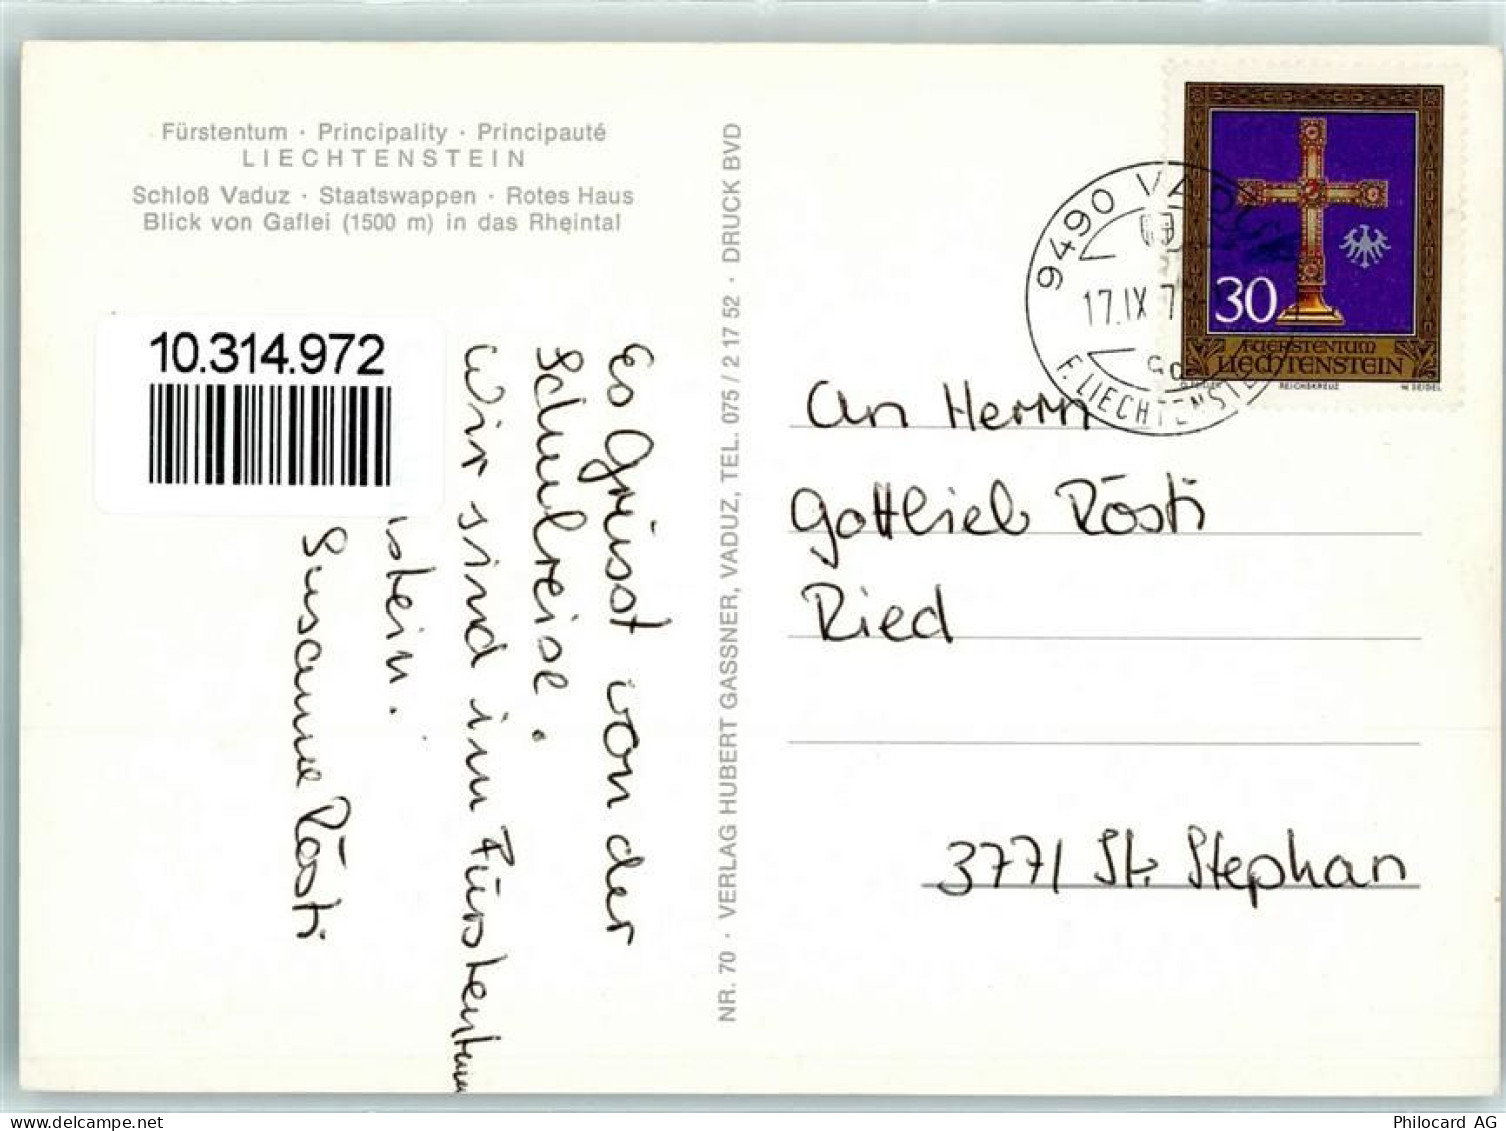 Fürstentum · Principality · Principauté
LIECHTENSTEIN
Schloß Vaduz · Staatswappen · Rotes Haus
Blick von Gaflei (1500 m) in das Rheintal
10.314.972
Es Grüsst von der
Schulreise.
Wir sind im Fürstentum
stein.
Susanne Rösti
NR. 70 · VERLAG HUBERT GASSNER, VADUZ, TEL. 075 / 2 17 52 · DRUCK BVD
9490 VADUZ
17.IX 7
F. LIECHTENSTEIN
30
FUERSTENTUM
LIECHTENSTEIN
REICHSKREUZ
W. SEIDEL
An Herrn
Gottlieb Rösti
Ried
3771 St. Stephan
10314972.jpg
Philocard AG